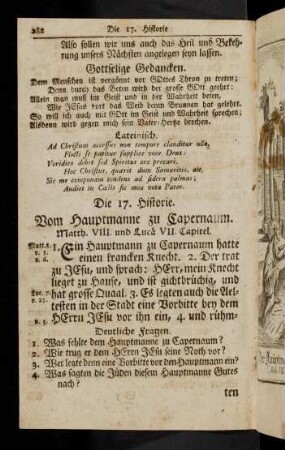 282 Die 17. Historie
Also sollen wir uns auch das Heil und Bekeh-
rung unsers Nächsten angelegen seyn lassen.
Gottselige Gedancken.
Dem Menschen ist vergönnt vor GOttes Thron zu treten;
Denn durch das Beten wird der grosse GOtt geehrt:
Allein man muß im Geist und in der Wahrheit beten,
Wie JEsus dort das Weib beym Brunnen hat gelehrt.
So will ich auch mit GOtt im Geist und Wahrheit sprechen;
Alsdenn wird gegen mich sein Vater-Hertze brechen.
Lateinisch.
Ad Christum accessus non tempore clauditur ullo,
Flecti se patitur supplice voce Deus:
Veridico debes sed Spiritus ore precari,
Hoc Christus, quaerit dum Samaritis, ait.
Sic me componam tendens ad sidera palmas;
Audiet in Caelis sic mea vota Pater.
Die 17. Historie.
Vom Hauptmanne zu Capernaum.
Matth. VIII. und Lucä VII. Capitel.
Matt. 8. 1. Ein Hauptmann zu Capernaum hatte
v. 5. einen krancken Knecht. 2. Der trat
v. 6. zu JEsu, und sprach: HErr, mein Knecht
lieget zu Hause, und ist gichtbrüchig, und
Luc. 7. hat grosse Quaal. 3. Es legten auch die Ael-
testen in der Stadt eine Vorbitte bey dem
HErrn JEsu vor ihn ein, 4. und rühm-
Deutliche Fragen.
1. Was fehlte dem Hauptmanne zu Capernaum?
2. Wie trug er dem HErrn JEsu seine Noth vor?
3. Wer legte denn eine Vorbitte vor den Hauptmann ein?
4. Was sagten die Jüden diesem Hauptmanne Gutes
nach?
ten